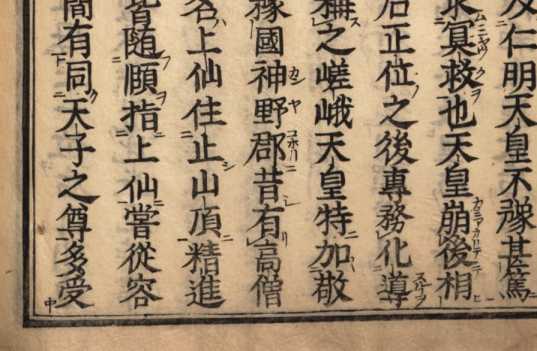 及仁明天皇不豫甚篤
求冥救也天皇崩後相
后正位之後專務化導
稱之嵯峨天皇特加敬
豫國神野郡昔有高僧
名上仙住止山頂精進
皆随願指上仙嘗從容
間有同天子之尊多受